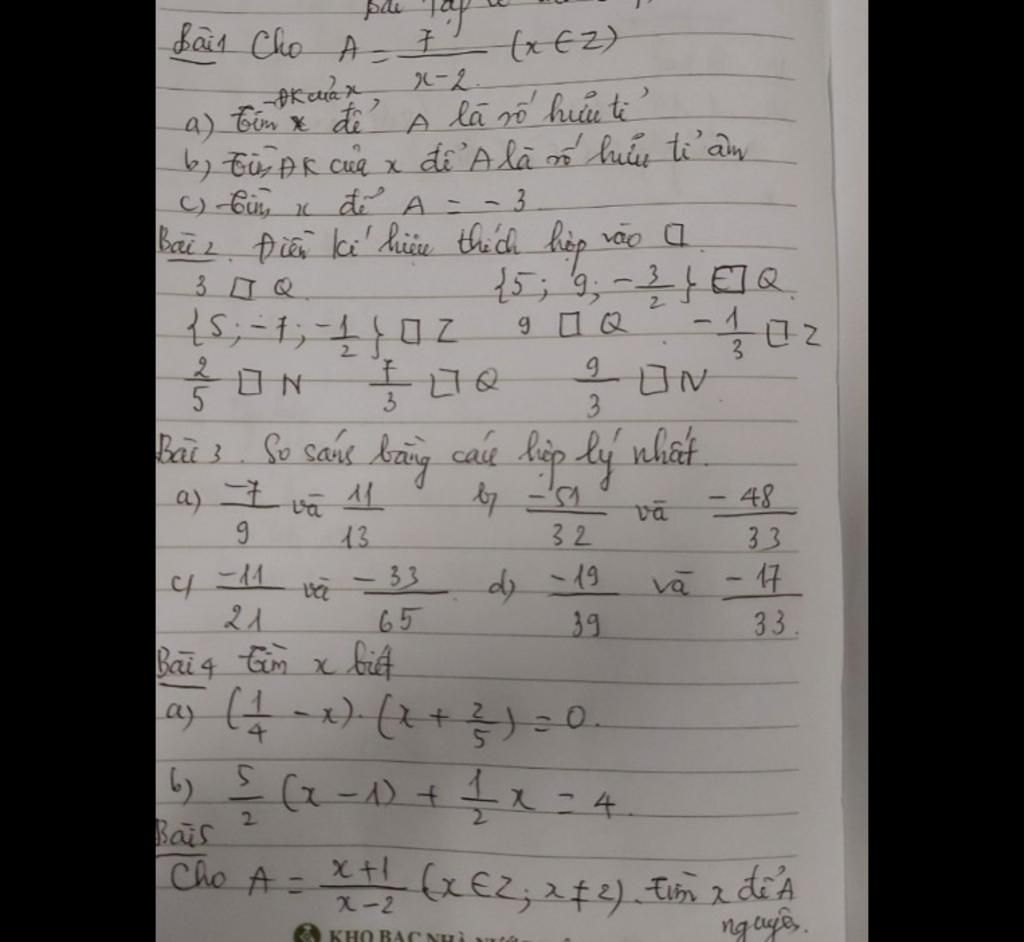 Bài Tập
Bài 1 Cho A = 7/(x-2) (x ∈ Z)
- ĐK của x
a) tìm x để A là số hữu tỉ
b) tìm ĐK của x để A là số hữu tỉ âm
c) tìm x để A = -3
Bài 2. Điền kí hiệu thích hợp vào □.
3 □ Q {5; 9; -3/2} ⊂ □ Q.
{5; -7; -1/2} □ Z 9 □ Q -1/3 □ Z
2/5 □ N 7/3 □ Q 9/3 □ N
Bài 3. So sánh bằng cách hợp lý nhất.
a) -7/9 và 11/13 b) -51/32 và -48/33
c) -11/21 và -33/65 d) -19/39 và -17/33.
Bài 4 tìm x biết
a) (1/4 - x).(x + 2/5) = 0.
b) 5/2 (x - 1) + 1/2 x = 4.
Bài 5
Cho A = (x+1)/(x-2) (x ∈ Z; x ≠ 2). tìm x để A
nguyên.
KHO BẠC NHÀ NƯỚC